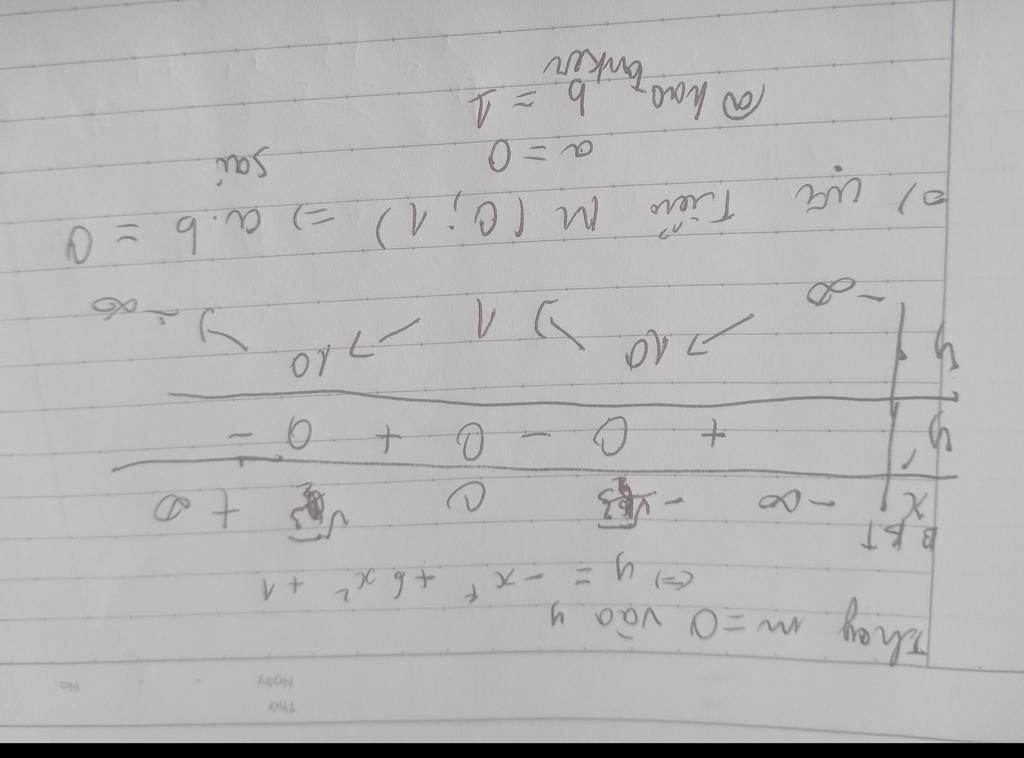 Thứ
Ngày No.
Thay m = 0 vào y
(=) y = -x⁴ + 6x² + 1
BBT
x -∞ -√3 0 √3 +∞
y' + 0 - 0 + 0 -
y -∞ ↗ 10 ↘ 1 ↗ 10 ↘ -∞
=) cực Tiểu M (0; 1) =) a.b = 0
a = 0 sai
@hao b = 1